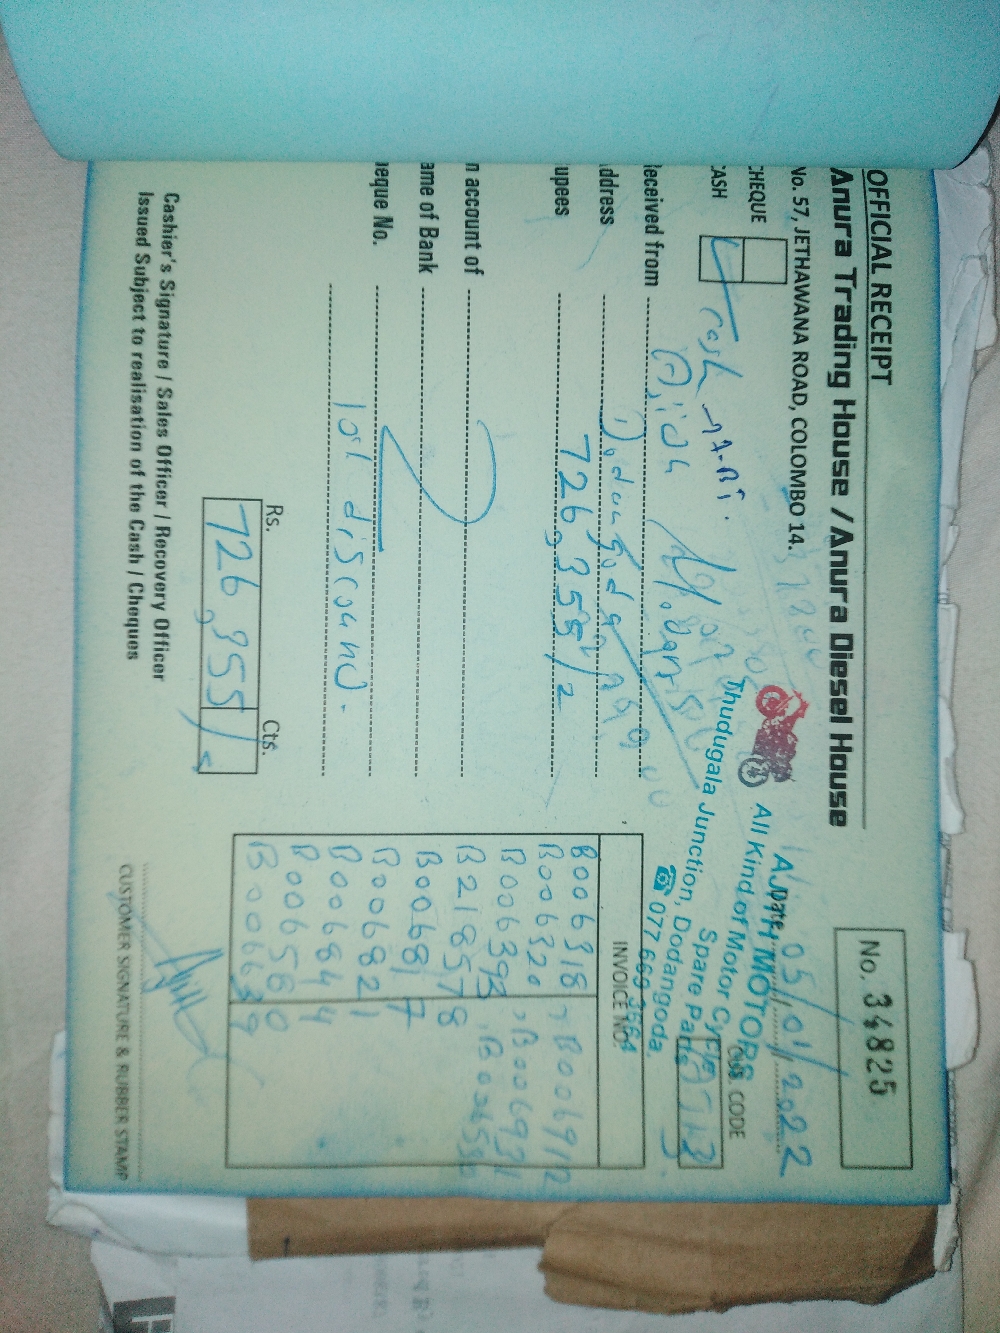 OFFICIAL RECEIPT
Anura Trading House / Anura Diesel House
No. 57, JETHAWANA ROAD, COLOMBO 14.
No. 34825
Date 05/01/2022
CHEQUE
CASH
Cash
CUS. CODE
AJITH MOTORS
All Kind of Motor Cycle
Spare Parts
Thudugala Junction, Dodangoda.
☎ 077 669 3564
Received from
Address
Rupees 726,355/=
On account of
Name of Bank
Cheque No.
10% discound.
INVOICE NO.
B006318, B006912
B006320, B006921
B006393
B218578
B006817
B006821
B006844
B006580
Rs. Cts.
726,355/=
Cashier's Signature / Sales Officer / Recovery Officer
Issued Subject to realisation of the Cash / Cheques
CUSTOMER SIGNATURE & RUBBER STAMP